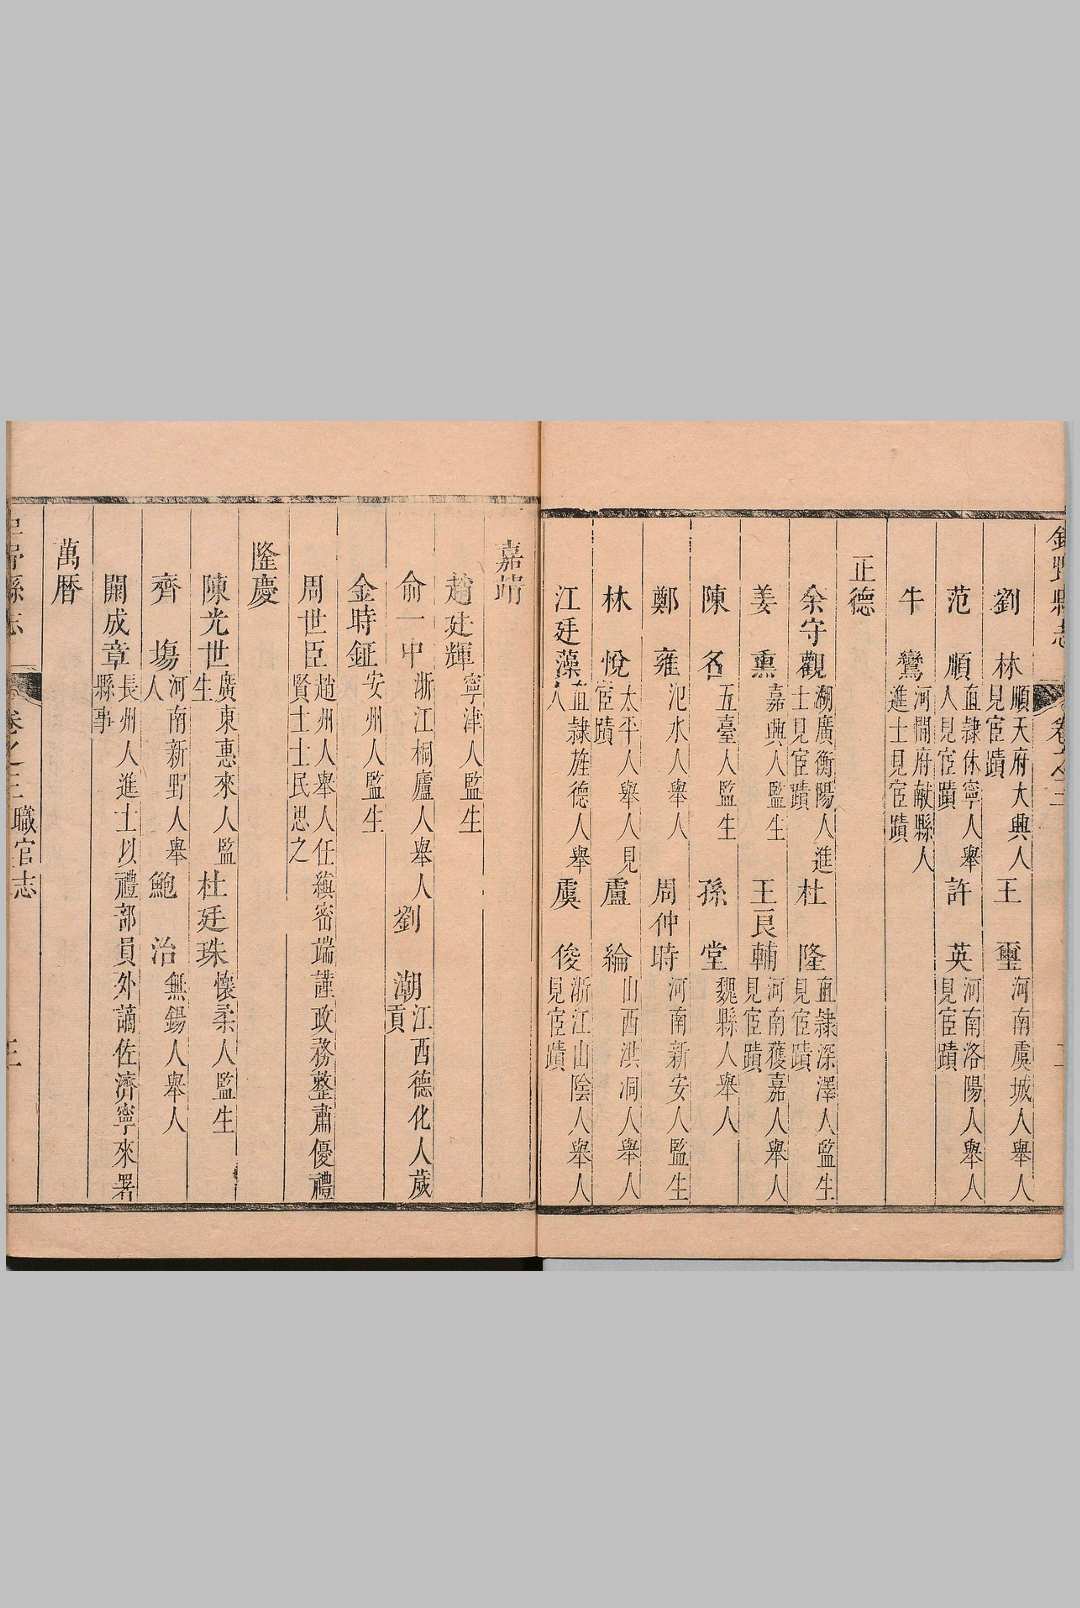 劉林順天府大興人見宦蹟 王璽河南虞城人舉人
范順直隸休寧人舉人見宦蹟 許英河南洛陽人舉人見宦蹟
牛鸞河間府獻縣人進士見宦蹟
正德
余守觀湖廣衡陽人進士見宦蹟 杜隆直隸深澤人監生見宦蹟
姜熏嘉興人監生 王良輔河南獲嘉人舉人見宦蹟
陳名五臺人監生 孫堂魏縣人舉人
鄭雍汜水人舉人 周仲時河南新安人監生
林悅太平人舉人見宦蹟 盧綸山西洪洞人舉人
江廷藻直隸旌德人舉人 虞俊浙江山陰人舉人見宦蹟
嘉靖
趙廷輝寧津人監生
俞一中浙江桐廬人舉人 劉潮江西德化人歲貢
金時鉦安州人監生
周世臣趙州人舉人任縝密端謹政務整肅優禮賢士士民思之
隆慶
陳光世廣東惠來人監生 杜廷珠懷柔人監生
齊塲河南新野人舉人 鮑治無錫人舉人
關成章長州人進士以禮部員外謫佐濟寧來署縣事
萬曆
卷之三職官志 三